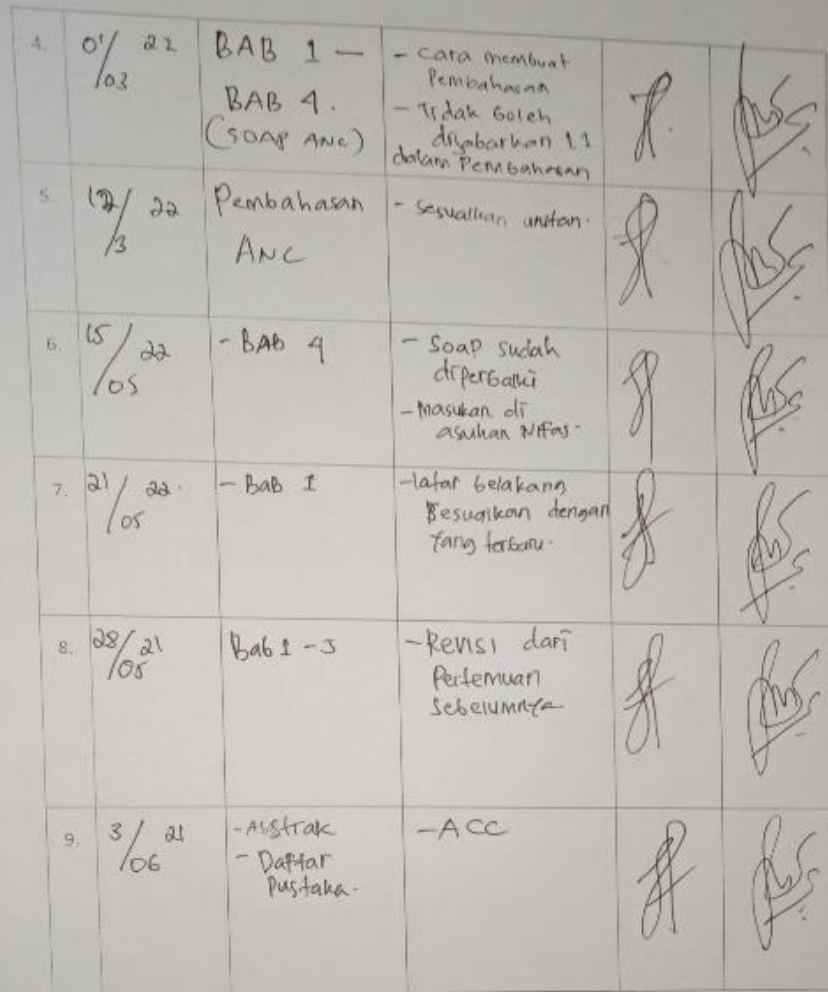 4. 01/03 22 BAB 1 —
BAB 4.
(SOAP ANC)
- cara membuat
Pembahasan
- Tidak boleh
dijabarkan 11
dalam Pembahasan
5. 12/3 22 Pembahasan
ANC
- Sesuaikan urutan.
6. 15/05 22 - BAB 4
- Soap sudah
diperbaiki
- Masukan di
asuhan Nifas-
7. 21/05 22. - BaB I
- latar belakang
Sesuaikan dengan
Yang terbaru.
8. 28/05 21 Bab 1 - 5
- Revisi dari
Pertemuan
Sebelumnya
9. 3/06 21 - Abstrak
- Daftar
Pustaka.
- ACC